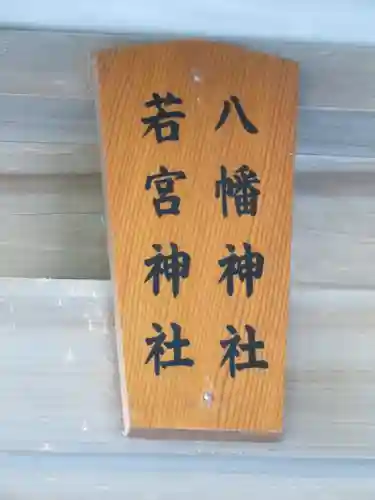 八幡神社
若宮神社